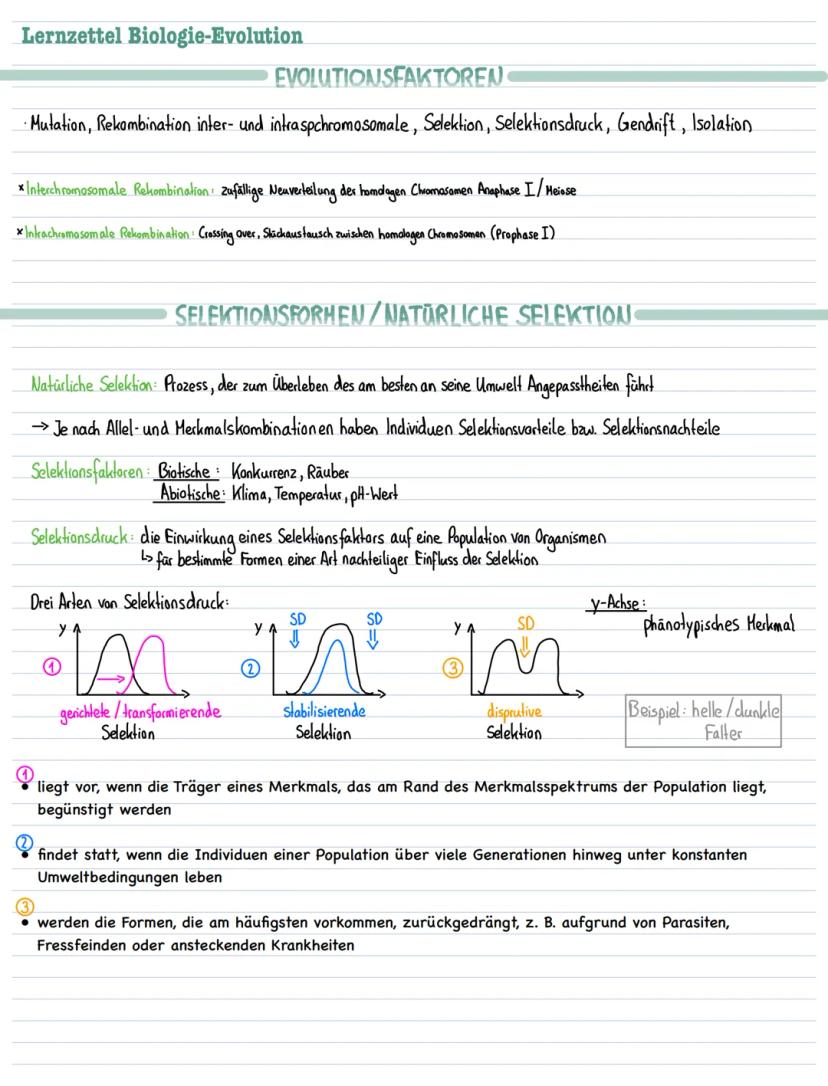 Lernzettel Biologie-Evolution
EVOLUTIONSFAKTOREN
· Mutation, Rekombination inter- und intraspchromosomale, Selektion, Selektionsdruck, Gendrift, Isolation
x Interchromosomale Rekombination: zufällige Neuverteilung der homologen Chromosomen Anaphase I/Meiose
x Intrachromosomale Rekombination: Crossing over, Stückaustausch zwischen homologen Chromosomen (Prophase I)
SELEKTIONSFORMEN/NATÜRLICHE SELEKTION
Natürliche Selektion: Prozess, der zum Überleben des am besten an seine Umwelt Angepasstheiten führt
→ Je nach Allel- und Merkmalskombinationen haben Individuen Selektionsvorteile bzw. Selektionsnachteile
Selektionsfaktoren: Biotische: Konkurrenz, Räuber
Abiotische: Klima, Temperatur, pH-Wert
Selektionsdruck: die Einwirkung eines Selektionsfaktors auf eine Population von Organismen
↳ für bestimmte Formen einer Art nachteiliger Einfluss der Selektion
Drei Arten von Selektionsdruck:
y-Achse:
phänotypisches Merkmal
y
① 
gerichtete/transformierende
Selektion
y SD SD
②
stabilisierende
Selektion
y SD
③
disprutive
Selektion
Beispiel: helle/dunkle
Falter
①
• liegt vor, wenn die Träger eines Merkmals, das am Rand des Merkmalsspektrums der Population liegt,
begünstigt werden
②
• findet statt, wenn die Individuen einer Population über viele Generationen hinweg unter konstanten
Umweltbedingungen leben
③
• werden die Formen, die am häufigsten vorkommen, zurückgedrängt, z. B. aufgrund von Parasiten,
Fressfeinden oder ansteckenden Krankheiten